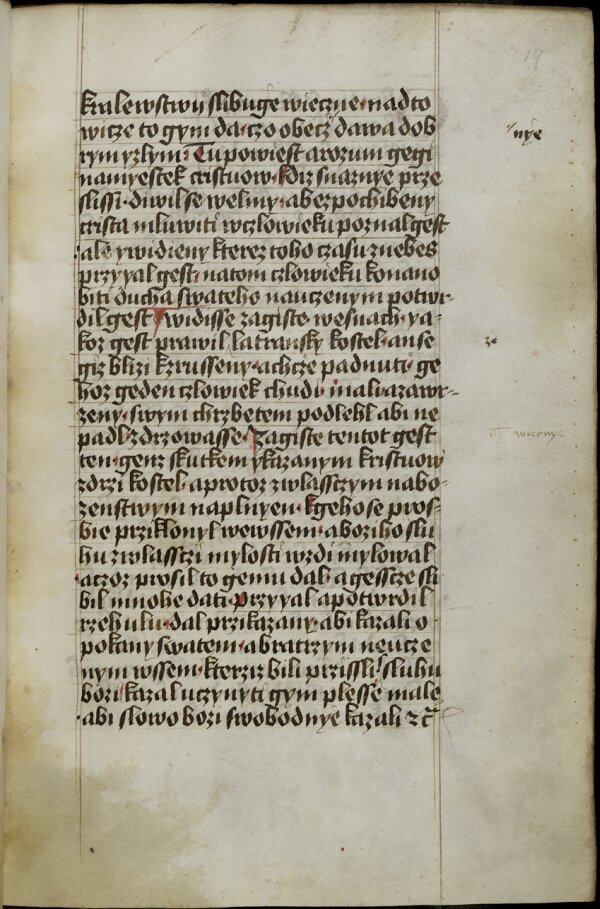 19
kralewstwij slibuge wieczne nadto
wicze to gym da czo obecz dawa dob
nye
rym y zlym Tu powiest a rozum gegi
namyestek cristuow kdiz snaznye prze
slissi diwil se welmy a bez pochibeny
crista mluwiti w czlowieku poznal gest
ale y widieny kterez toho czasu z nebes
przyyal gest na tom czlowieku konano
biti ducha swateho nauczenym potwr
dil gest widisse zagiste we snach ya
koz gest prawil latransky kostel an se
ze
giz blizi k zrusseny a chcze padnuti ge
hoz geden czlowiek chudi mali a zawr
zeny swym chrzbetem podlehl abi ne
padl zdrzowasse Zagiste tentot gest
wiernye
ten genz skutkem y kazanym kristuow
zdrzi kostel a protoz zwlassczym nabo
zenstwym naplnyen k geho se pros
bie prziklonyl we wssem a boziho slu
hu zwlassczi mylosti wzdi mylowal
aczoz prosil to gemu dal a gesscze sli
bil mnohe dati przyyal a potwrdil
rzehulu dal przikazany abi kazali o
pokany swatem a bratrzym neucze
nym wssem kterziz bili przissli sluhu
bozi kazal uczynyti gym plesse male
abi slowo bozi swobodnye kazali ⁊c̄